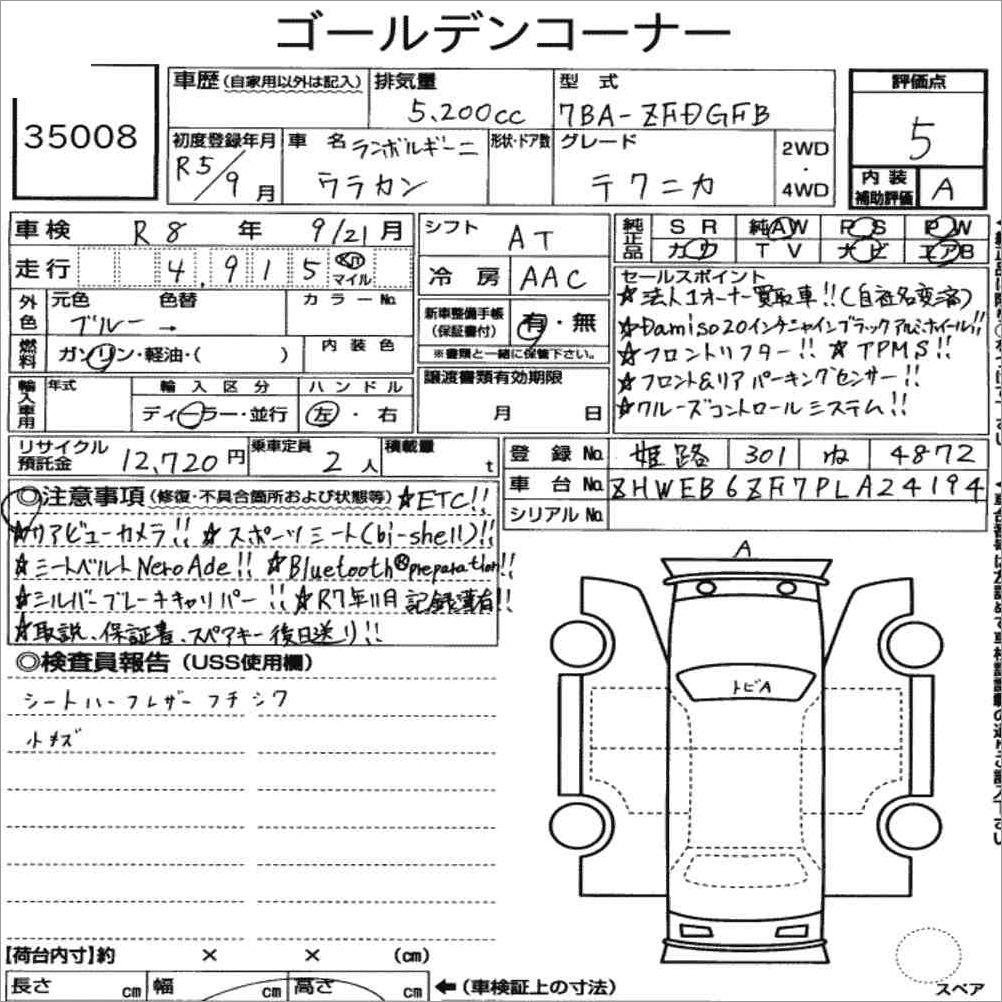 ゴールデンコーナー
35008
車歴 (自家用以外は記入) 排気量 5,200cc 型式 7BA-ZFDGFB
評価点 5
初度登録年月 R5/9月 車名 ランボルギーニ ウラカン 形状・ドア数 グレード テクニカ 2WD・4WD
内装補助評価 A
車検 R8年 9/21月
走行 4,915 Km マイル
外色 元色 ブルー → 色替 カラーNo.
燃料 ガソリン・軽油・( ) 内装色
輸入車用 年式 輸入区分 ディーラー・並行 ハンドル 左・右
シフト AT
冷房 AAC
新車整備手帳(保証書付) 有・無
※書類と一緒に保管下さい。
譲渡書類有効期限 月 日
純正品 SR 純AW PS PW
カワ TV ナビ エアB
セールスポイント
☆法人1オーナー買取車!!(自社名変済)
☆Damiso20インチシャインブラックアルミホイール!!
☆フロントリフター!! ☆TPMS!!
☆フロント&リアパーキングセンサー!!
☆クルーズコントロールシステム!!
リサイクル預託金 12,720円 乗車定員 2人 積載量 t
登録No. 姫路 301 ね 4872
車台No. ZHWEB6ZF7PLA24194
シリアルNo.
◎注意事項 (修復・不具合箇所および状態等) ☆ETC!!
☆リアビューカメラ!! ☆スポーツシート(bi-shell)!!
☆シートベルトNero Ade!! ☆Bluetooth®preparation!!
☆シルバーブレーキキャリパー!! ☆R7年11月記録簿有!!
☆取説、保証書、スペアキー後日送り!!
◎検査員報告 (USS使用欄)
シートハーフレザーフチシワ
小キズ
A
トビA
【荷台内寸】約 × × (cm)
長さ cm 幅 cm 高さ cm ←(車検証上の寸法)
スペア